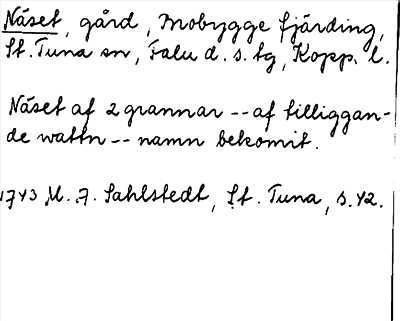 Näset, gård, Mobygge fjärding,
St. Tuna sn, Falu d. s. tg, Kopp. l.
Näset af 2 grannar -- af tilliggan-
de wattn -- namn bekomit.
1743 M. A. Sahlstedt, St. Tuna, s. 42.